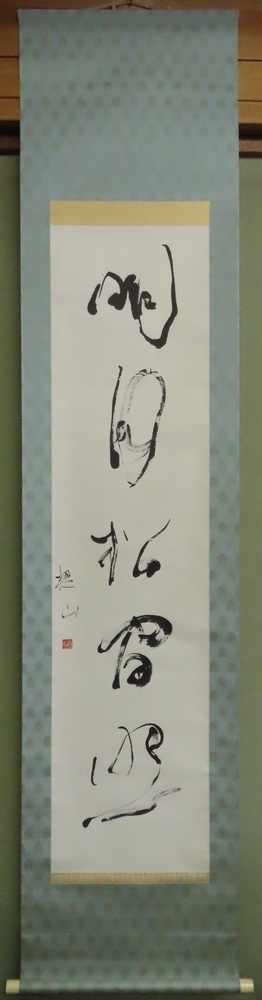 明月松間照
山